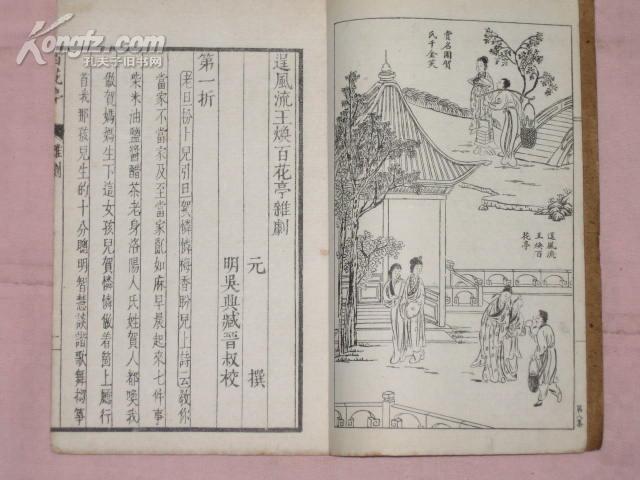 Kongfz.com
孔夫子旧书网
賞名園賀
氏千金笑
逞風流
王煥百
花亭
逞風流王煥百花亭雜劇
元 撰
明吳興臧晉叔校
第一折
老旦扮卜兒引旦賀憐憐梅香盼兒上詩云教你
當家不當家及至當家亂如麻早晨起來七件事
柴米油鹽醬醋茶老身洛陽人氏姓賀人都喚我
做賀媽媽生下這女孩兒賀憐憐做着箇上廳行
首我那孩兒生的十分聰明智慧談諧歌舞搊箏
百花亭
雜劇